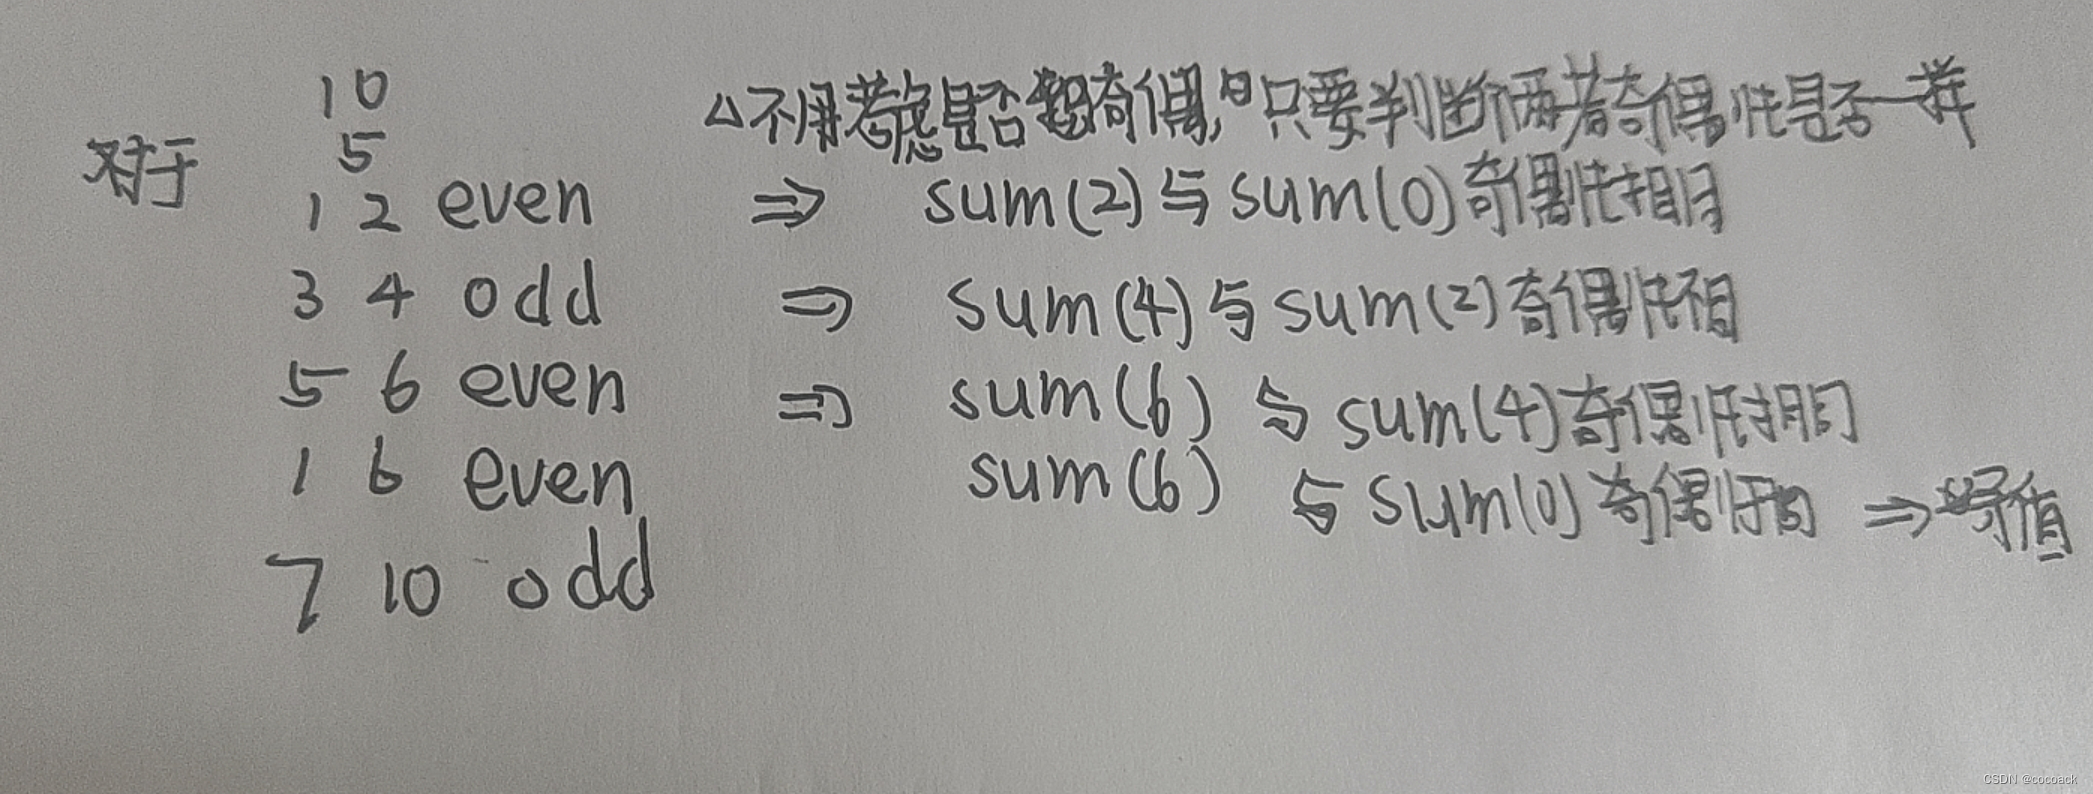 10
5
对于
△不用考虑是否 奇偶,只要判断两者奇偶性是否一样
1 2 even ⇒ sum(2)与sum(0)奇偶性相同
3 4 odd ⇒ sum(4)与sum(2)奇偶性不相
5 6 even ⇒ sum(6) 与 sum(4)奇偶性相同
1 6 even sum(6) 与 sum(0)奇偶性同 ⇒
7 10 odd
CSDN @cocoack